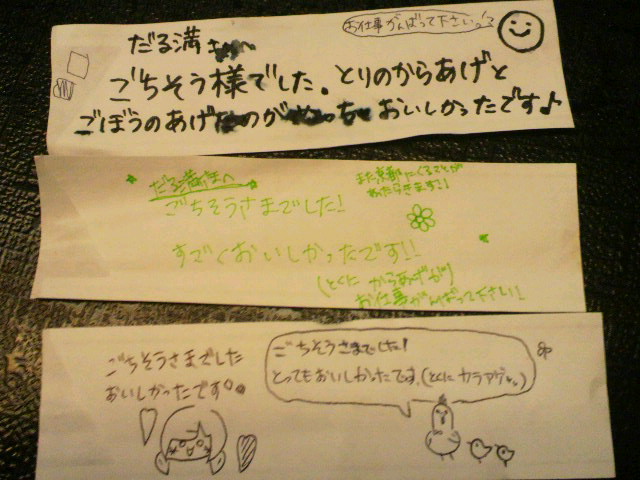 お仕事がんばって下さいっ!
だる満さまへ
ごちそう様でした。とりのからあげと
ごぼうのあげたのが おいしかったです♪
だる満さまへ
また京都にくることが
あったら
ごちそうさまでした!
すごくおいしかったです!!
(とくに からあげが)
お仕事がんばって下さい!
ごちそうさまでした
おいしかったです。
ごちそうさまでした!
とってもおいしかったです。(とくに カラアゲ